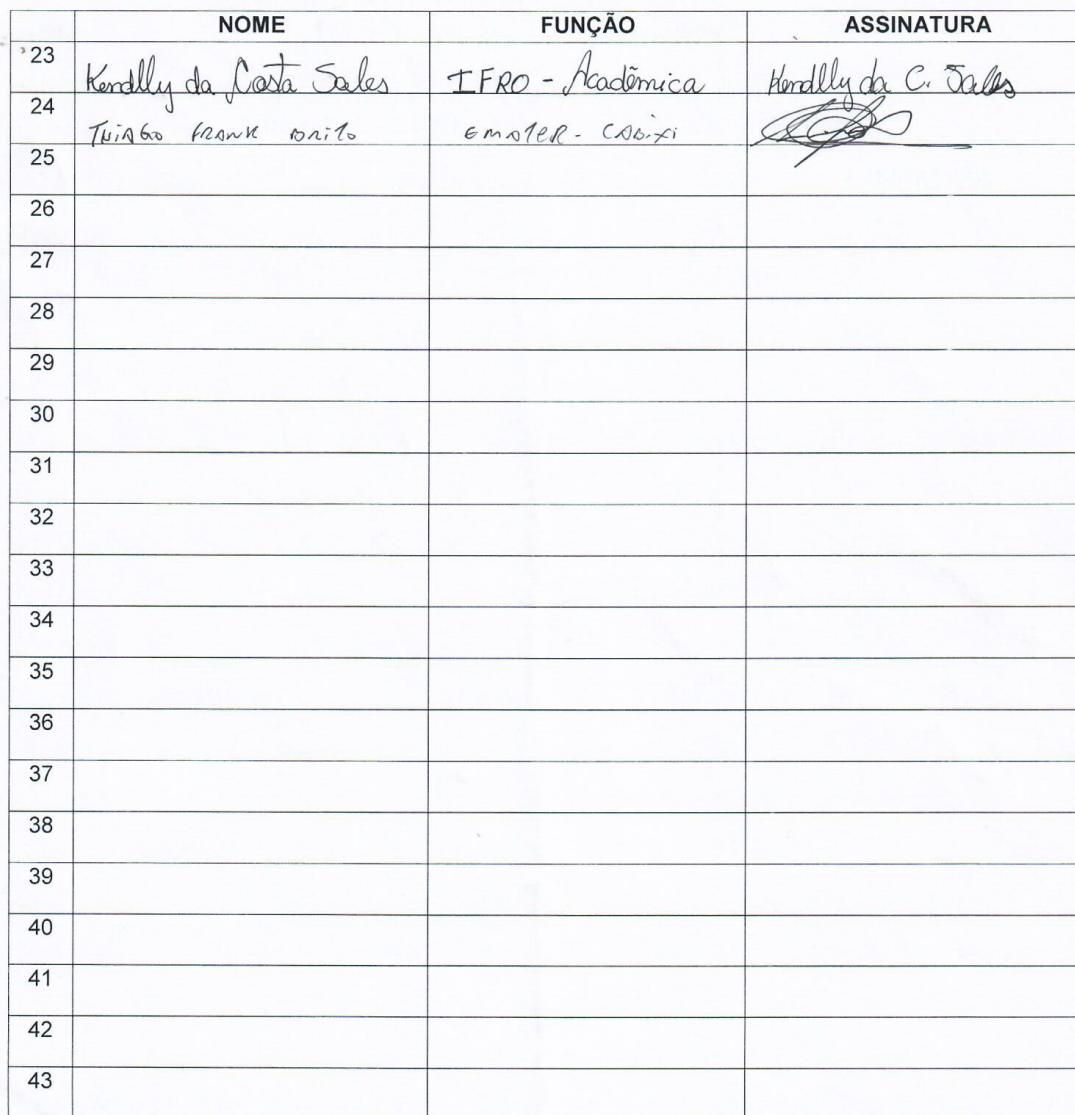 NOME FUNÇÃO ASSINATURA
23 Kendlly da Costa Sales IFRO - Acadêmica Kendlly da C. Sales
24 THIAGO FRANK BRITO EMATER - CABIXI
25
26
27
28
29
30
31
32
33
34
35
36
37
38
39
40
41
42
43